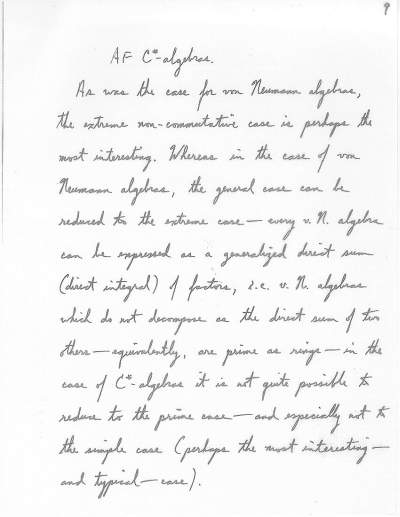 9
AF C*-algebras.
As was the case for von Neumann algebras,
the extreme non-commutative case is perhaps the
most interesting. Whereas in the case of von
Neumann algebras, the general case can be
reduced to the extreme case — every v. N. algebra
can be expressed as a generalized direct sum
(direct integral) of factors, i.e. v. N. algebras
which do not decompose as the direct sum of two
others — equivalently, are prime as rings — in the
case of C*-algebras it is not quite possible to
reduce to the prime case — and especially not to
the simple case (perhaps the most interesting —
and typical — case).